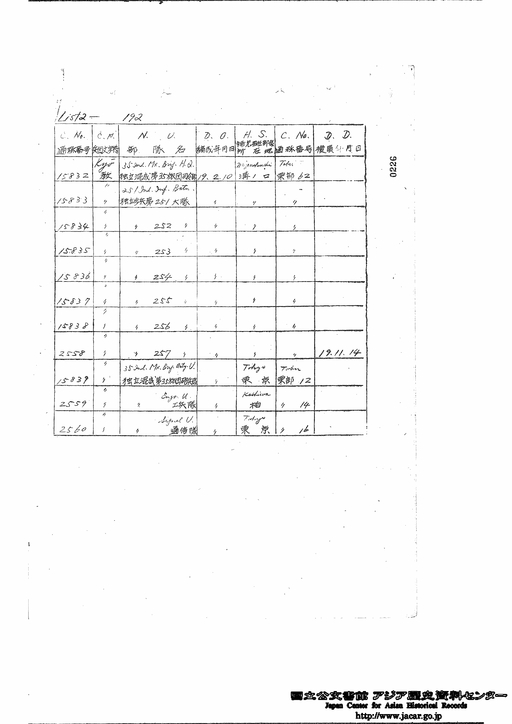 List 2 — 192
C. No. C. M. N. U. D. O. H. S. C. No. D. D.
通称番号 部隊名 編成年月日 所在地 通称番号 年月日
Kyō 35 Ind. Mx. Brig. H.Q. Tobu
15832 独立混成第35旅団司令部 19.2.10 溝ノ口 東部62
251 Ind. Inf. Batn.
15833 〃 独立歩兵第251大隊 〃 〃 〃
15834 〃 〃 252 〃 〃 〃 〃
15835 〃 〃 253 〃 〃 〃 〃
15836 〃 〃 254 〃 〃 〃 〃
15837 〃 〃 255 〃 〃 〃 〃
15838 〃 〃 256 〃 〃 〃 〃
2558 〃 〃 257 〃 〃 〃 〃 19.11.14
35 Ind. Mx. Brig. Arty U. Tokyo Tobu
15839 〃 独立混成第35旅団砲兵隊 東京 東部12
Engr. U. Kashiwa
2559 〃 〃 工兵隊 柏 〃 14
Signal U. Tokyo
2560 〃 〃 通信隊 東京 〃 16
0226
国立公文書館 アジア歴史資料センター
Japan Center for Asian Historical Records
http://www.jacar.go.jp